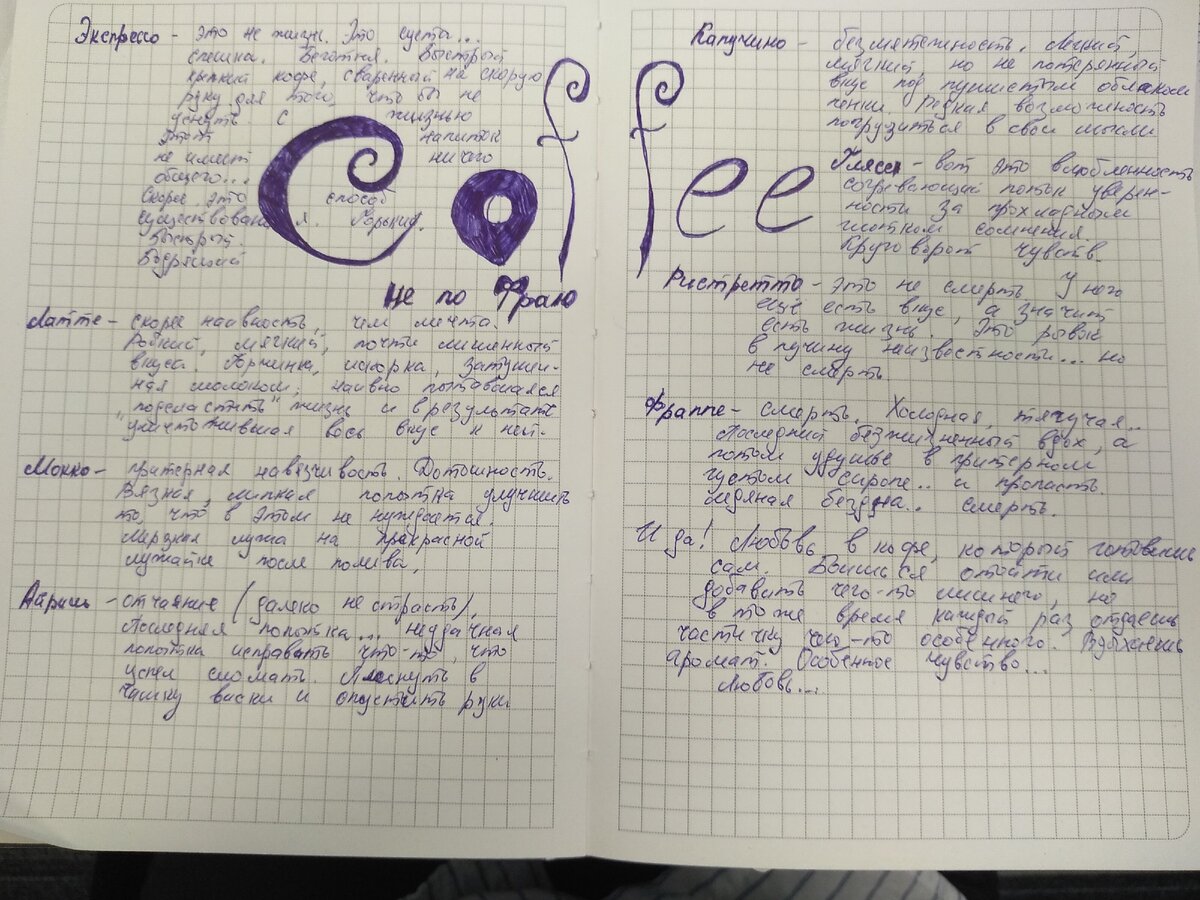 Экспрессо - это не жизнь. Это суета...
спешка. Беготня. Быстрый
крепкий кофе, сваренный на скорую
руку для того, что бы не
уснуть с жизнью
этот напиток
не имеет ничего
общего...
Скорее это способ
существования. Горький.
Быстрый.
Бодрящий
Coffee
Не по Фраю
Латте - скорее наивность, чем мечта.
Робкий, мягкий, почти лишенный
вкуса. Горчинка, искорка, затушен-
ная молоком, наивно пытавшаяся
"подсластить" жизнь и в результате
уничтожившая весь вкус к ней.
Мокко - притерная навязчивость. Дотошность.
Вязкая, липкая попытка улучшить
то, что в этом не нуждается.
Мерзкая лужа на прекрасной
лужайке после полива.
Айриш - отчаяние (далеко не страсть),
Последняя попытка... неудачная
попытка исправить что-то, что
успел сломать. Плеснуть в
чашку виски и опустить руки
Капучино - безмятежность. Легкий,
мягкий но не потерянный
вкус под пушистым облаком
пенки. Редкая возможность
погрузиться в свои мысли
Глясе - вот это влюбленность
согревающий поток уверен-
ности за прохладным
глотком сомнения.
Круговорот чувств.
Ристретто - это не смерть У него
еще есть вкус, а значит
есть жизнь. Это рывок
в пучину неизвестности... но
не смерть.
Фраппе - смерть. Холодная, тягучая..
Последний безжизненный вдох, а
потом удушье в притерном
густом сиропе.. и пропасть.
ледяная бездна.. смерть.
И да! Любовь в кофе, который готовишь
сам. Боишься отойти или
добавить чего-то лишнего, но
в то же время каждый раз отдаешь
частичку чего-то особенного. Вдыхаешь
аромат. Особенное чувство...
Любовь...